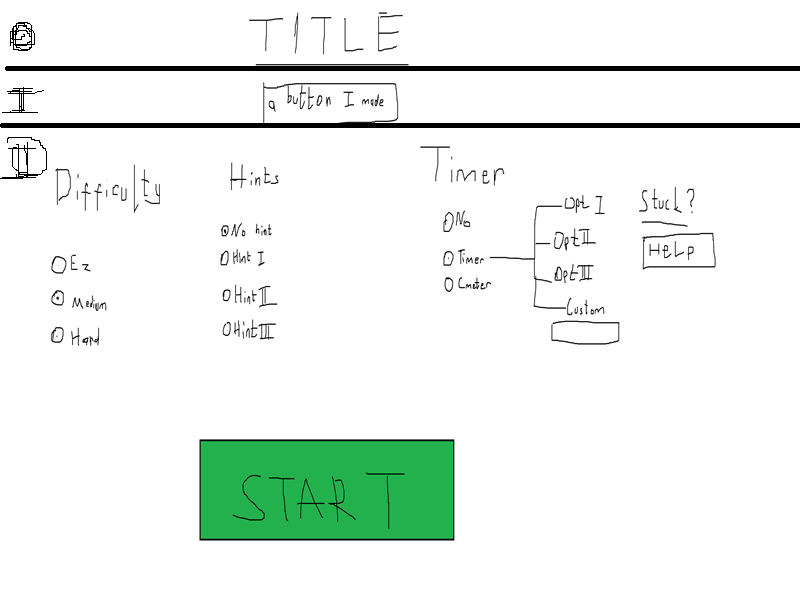 TITLE
I
a button I made
II
Difficulty
Ez
Medium
Hard
Hints
No hint
Hint I
Hint II
Hint III
Timer
No
Timer
Cmeter
Opt I
Opt II
Opt III
Custom
Stuck?
HELP
START